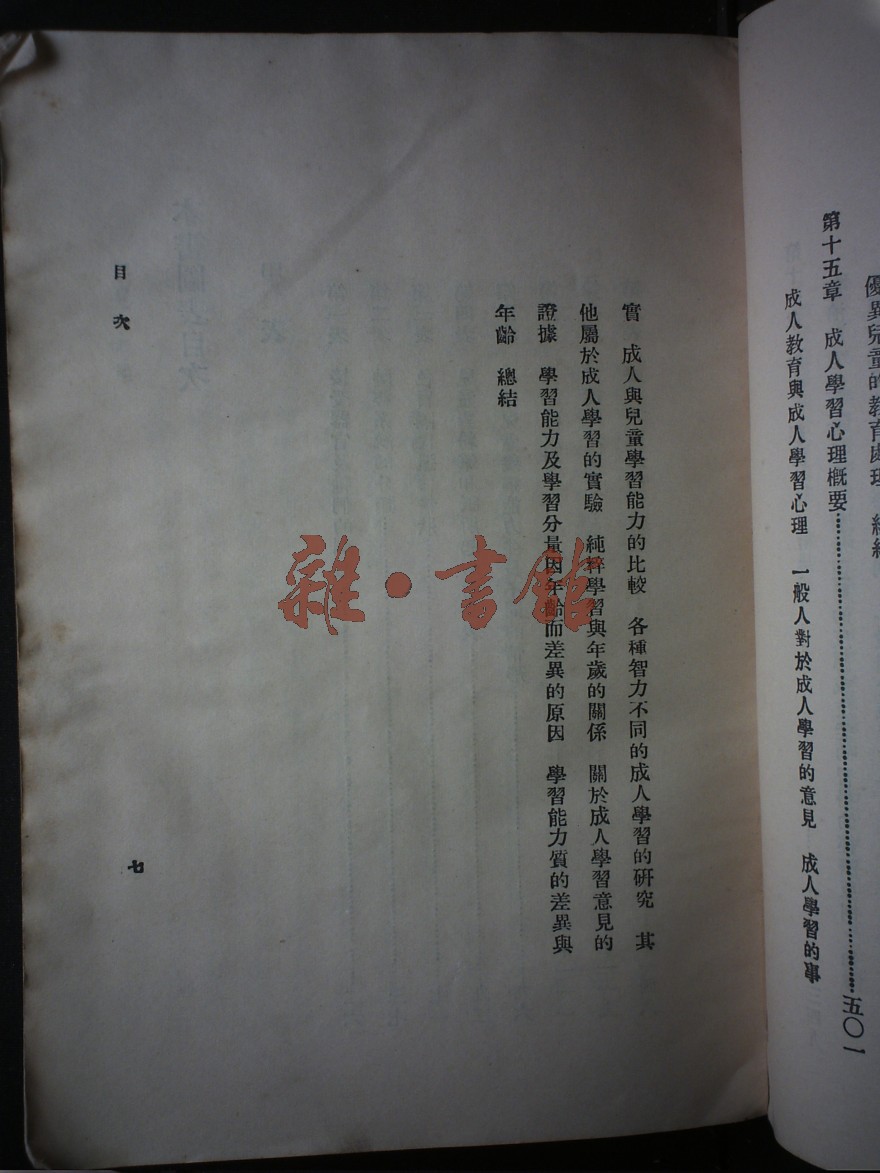 優異兒童的教育處理 總結
第十五章 成人學習心理概要……五〇一
成人教育與成人學習心理 一般人對於成人學習的意見 成人學習的事
實 成人與兒童學習能力的比較 各種智力不同的成人學習的研究 其
他屬於成人學習的實驗 純粹學習與年歲的關係 關於成人學習意見的
證據 學習能力及學習分量因年齡而差異的原因 學習能力質的差異與
年齡 總結
目次
七
雜·書館